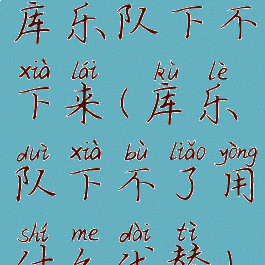 库乐队下不
xià lái kù lè
下来(库乐
duì xià bù liǎo yòng
队下不了用
shí me dài tì
什么代替)